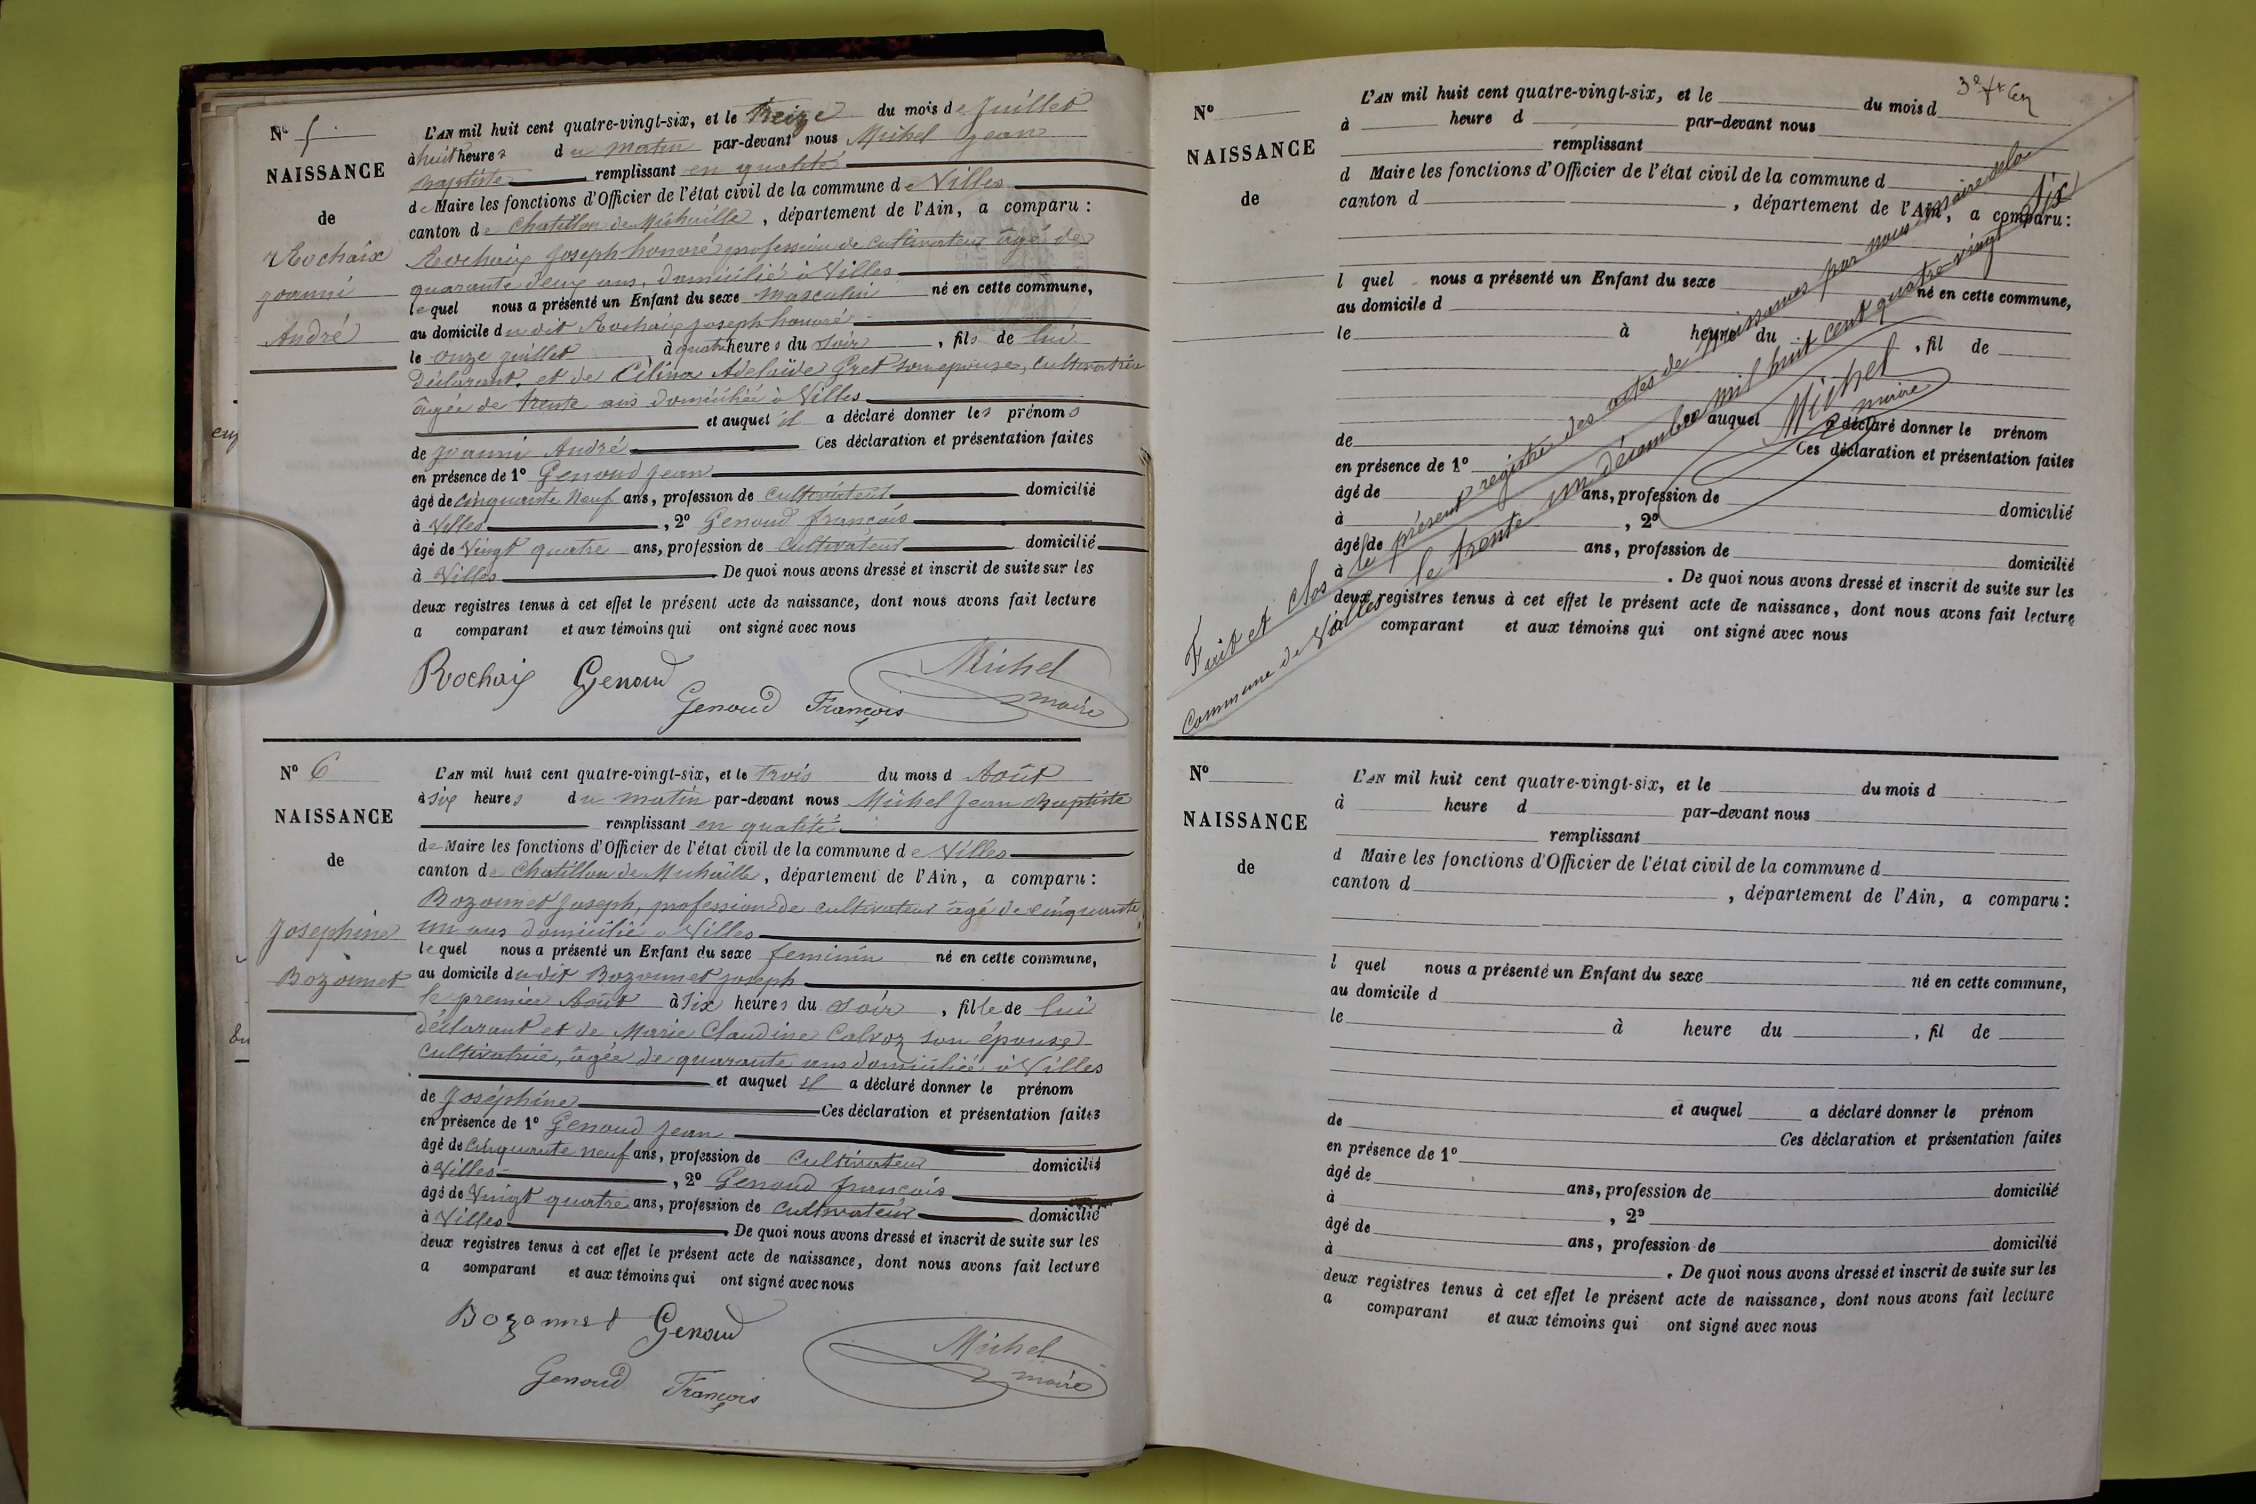 N° 5
NAISSANCE
de
Rochaix
Joanni
André
L'AN mil huit cent quatre-vingt-six, et le Treize du mois de Juillet
à huit heures du matin par-devant nous Michel Jean
Baptiste remplissant en qualité
de Maire les fonctions d'Officier de l'état civil de la commune de Villes
canton de Chatillon de Michaille, département de l'Ain, a comparu :
Rochaix Joseph honoré profession de cultivateur âgé de
quarante deux ans, domicilié à Villes
lequel nous a présenté un Enfant du sexe masculin né en cette commune,
au domicile dudit Rochaix Joseph honoré
le onze juillet à quatre heures du soir, fils de lui
déclarant et de Célina Adelaïde Gret son épouse, cultivatrice
âgée de trente ans domiciliée à Villes
et auquel il a déclaré donner les prénoms
de Joanni André Ces déclaration et présentation faites
en présence de 1° Genoud Jean
âgé de cinquante neuf ans, profession de cultivateur domicilié
à Villes, 2° Genoud françois
âgé de Vingt quatre ans, profession de cultivateur domicilié
à Villes De quoi nous avons dressé et inscrit de suite sur les
deux registres tenus à cet effet le présent acte de naissance, dont nous avons fait lecture
a comparant et aux témoins qui ont signé avec nous
Rochaix Genoud Michel
Genoud François maire
N° 6
NAISSANCE
de
Joséphine
Bozonnet
L'AN mil huit cent quatre-vingt-six, et le trois du mois d Août
à six heures du matin par-devant nous Michel Jean Baptiste
remplissant en qualité
de Maire les fonctions d'Officier de l'état civil de la commune de Villes
canton de Chatillon de Michaille, département de l'Ain, a comparu :
Bozonnet Joseph, profession de cultivateur âgé de cinquante
un ans domicilié à Villes
lequel nous a présenté un Enfant du sexe feminin né en cette commune,
au domicile dudit Bozonnet Joseph
le premier Août à six heures du soir, fille de lui
déclarant et de Marie Claudine Calvoz son épouse
cultivatrice, âgée de quarante ans domiciliée à Villes
et auquel il a déclaré donner le prénom
de Joséphine Ces déclaration et présentation faites
en présence de 1° Genoud Jean
âgé de cinquante neuf ans, profession de cultivateur domicilié
à Villes, 2° Genoud françois
âgé de Vingt quatre ans, profession de cultivateur domicilié
à Villes De quoi nous avons dressé et inscrit de suite sur les
deux registres tenus à cet effet le présent acte de naissance, dont nous avons fait lecture
a comparant et aux témoins qui ont signé avec nous
Bozonnet Genoud
Michel
Genoud François maire
N°
NAISSANCE
de
L'AN mil huit cent quatre-vingt-six, et le du mois d
à heure d par-devant nous
remplissant
d Maire les fonctions d'Officier de l'état civil de la commune d
canton d , département de l'Ain, a comparu :
l quel nous a présenté un Enfant du sexe
né en cette commune,
au domicile d
le à heure du , fil de
et auquel a déclaré donner le prénom
de Ces déclaration et présentation faites
en présence de 1°
âgé de ans, profession de domicilié
à , 2°
âgé de ans, profession de domicilié
à . De quoi nous avons dressé et inscrit de suite sur les
deux registres tenus à cet effet le présent acte de naissance, dont nous avons fait lecture
a comparant et aux témoins qui ont signé avec nous
Fait et clos le présent registre des actes de naissances par nous maire de la
Commune de Villes le trente un décembre mil huit cent quatre vingt six
Michel
maire
N°
NAISSANCE
de
L'AN mil huit cent quatre-vingt-six, et le du mois d
à heure d par-devant nous
remplissant
d Maire les fonctions d'Officier de l'état civil de la commune d
canton d , département de l'Ain, a comparu :
l quel nous a présenté un Enfant du sexe né en cette commune,
au domicile d
le à heure du , fil de
et auquel a déclaré donner le prénom
de Ces déclaration et présentation faites
en présence de 1°
âgé de ans, profession de domicilié
à , 2°
âgé de ans, profession de domicilié
à . De quoi nous avons dressé et inscrit de suite sur les
deux registres tenus à cet effet le présent acte de naissance, dont nous avons fait lecture
a comparant et aux témoins qui ont signé avec nous